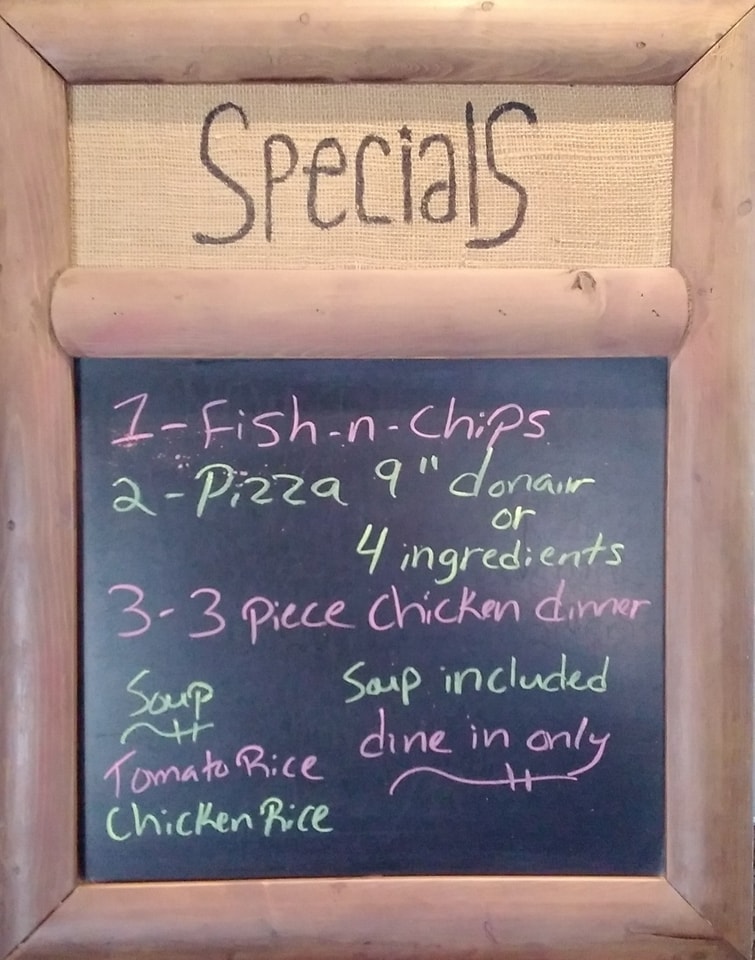 Specials
1-Fish-n-Chips
2-Pizza 9" donair
or
4 ingredients
3-3 piece Chicken dinner
Soup
Tomato Rice
Chicken Rice
Soup included
dine in only